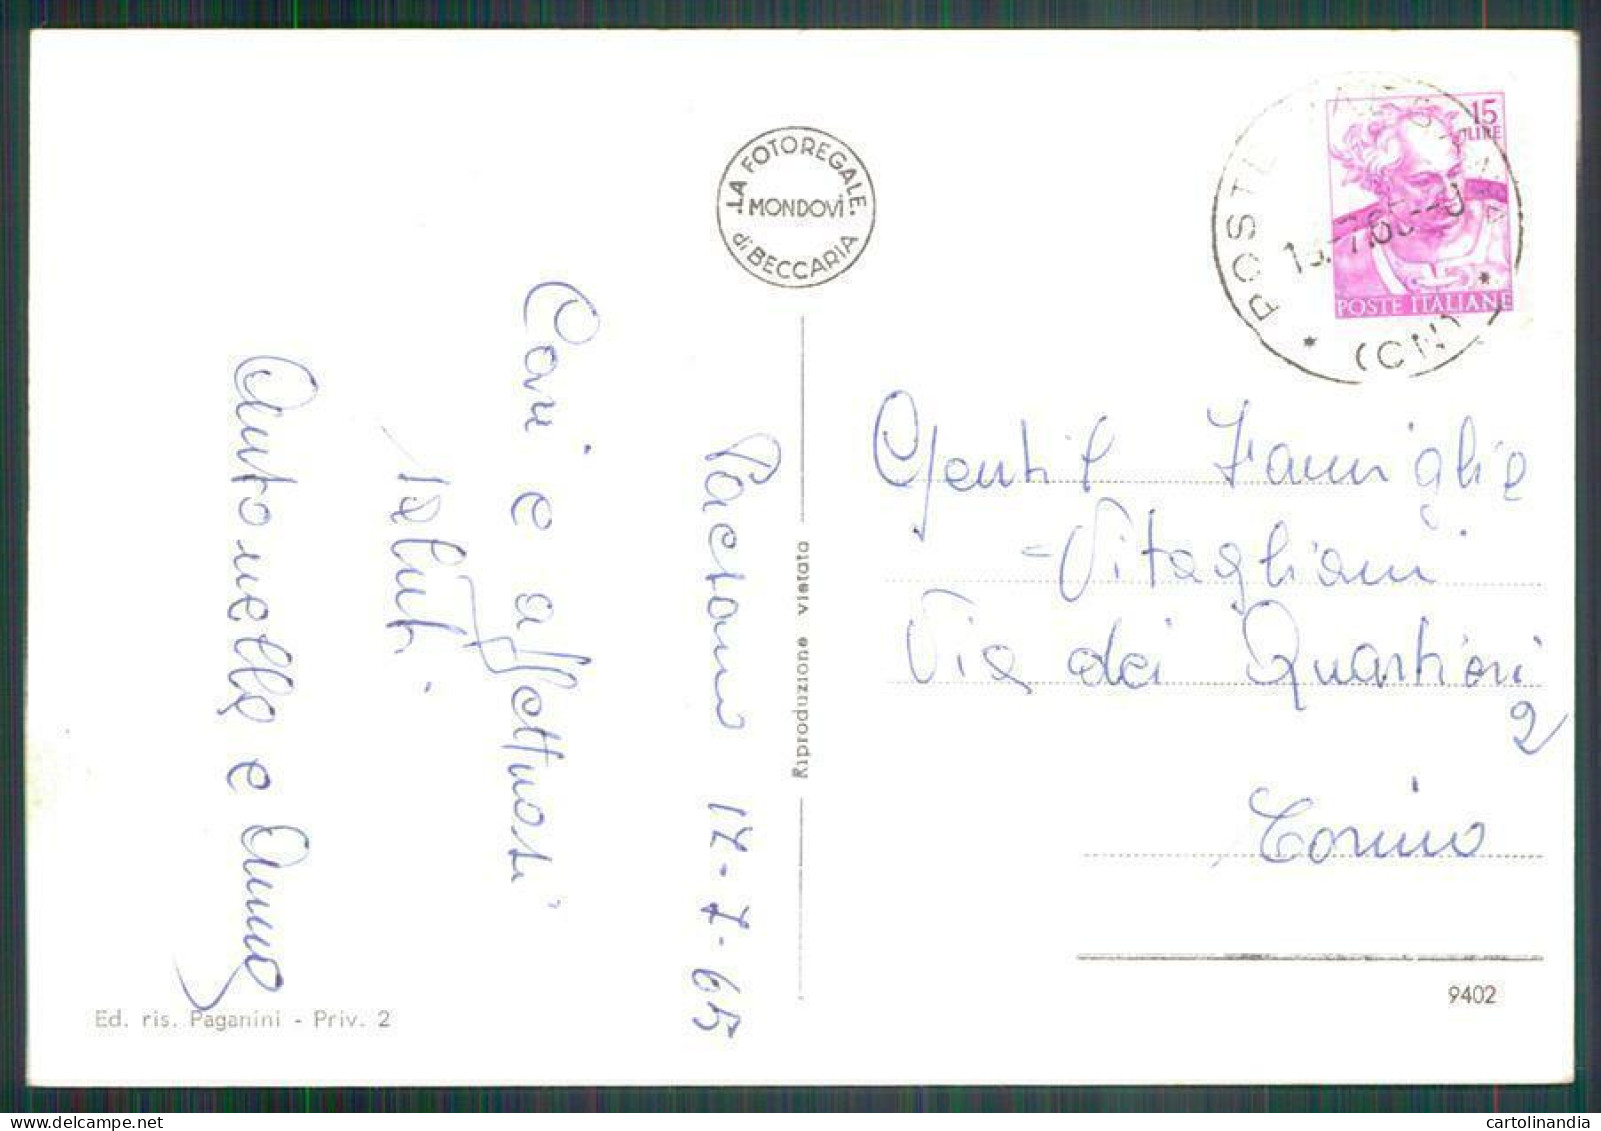 .LA FOTOREGALE.
MONDOVÌ
di BECCARIA
15
LIRE
POSTE ITALIANE
POSTE
(CN)
Paesana 17-7-65
Cari e affettuosi
saluti
Antonella e Anna
Gentil Famiglia
Vitagliani
Via dei Quartieri
2
Torino
Riproduzione vietata
Ed. ris. Paganini - Priv. 2
9402
cartolinandia